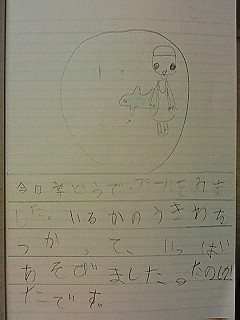 今日学どうで、プールをみま
した。いるかのうきわを
つかって、いっぱい
あそびました。たのしかっ
たです。